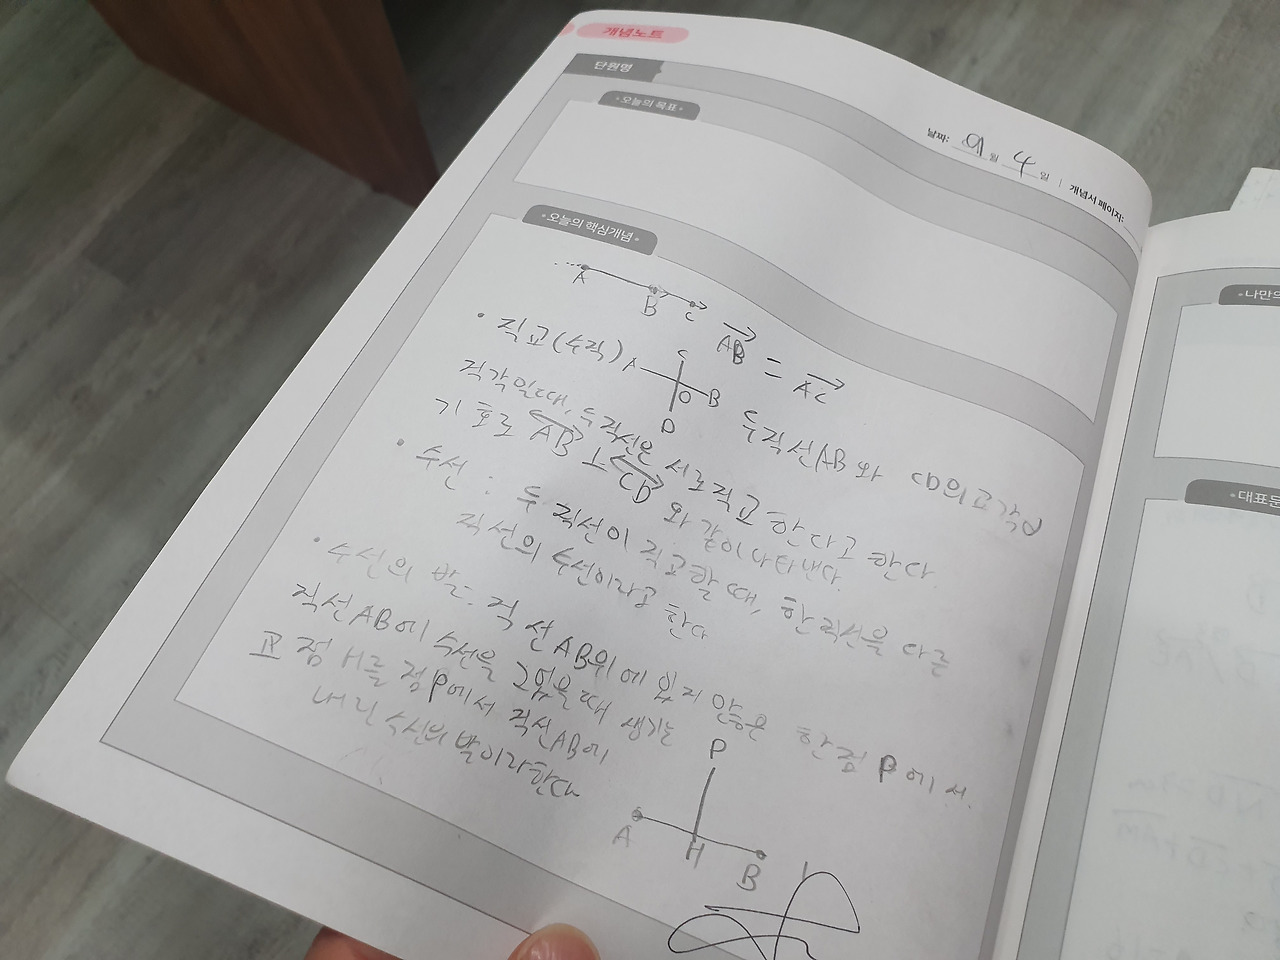 개념노트
단원명
• 오늘의 목표 •
날짜: 9 월 4 일 | 개념서 페이지:
• 오늘의 핵심개념 •
A B C AB = AC
• 직교(수직) A C O B D 두직선AB와 CD의교각이
직각일때, 두직선은 서로직교 한다고 한다.
기호로 AB ⊥ CD 와 같이 나타낸다.
• 수선 : 두 직선이 직교할 때, 한직선을 다른
직선의 수선이라고 한다
• 수선의 발: 직선AB위에 있지 않은 한점 P에서
직선AB에 수선을 그었을때 생기는
교점 H를 점P에서 직선AB에
내린 수선의 발이라한다
P
A H B
• 나만의
• 대표문